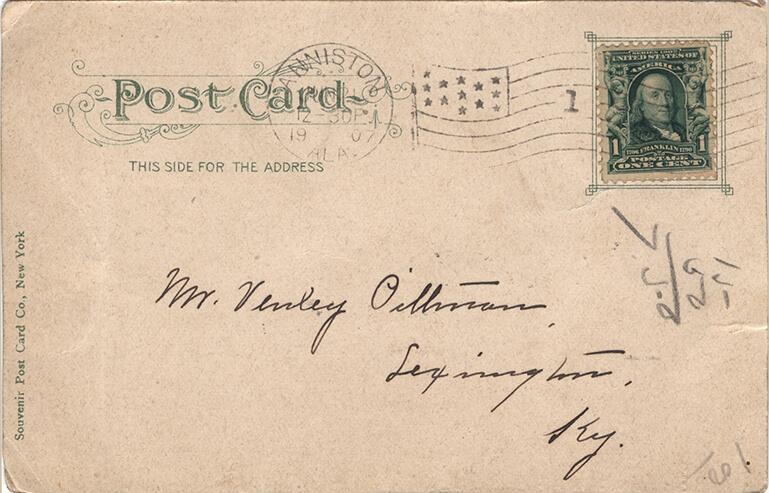 ANNISTON
12-30P
1907
ALA.
1
Post Card
THIS SIDE FOR THE ADDRESS
SERIES 1902
UNITED STATES OF
AMERICA
1706 FRANKLIN 1790
1 1
POSTAGE
ONE CENT
Mr. Venley Pittman,
Lexington,
Ky.
Souvenir Post Card Co., New York